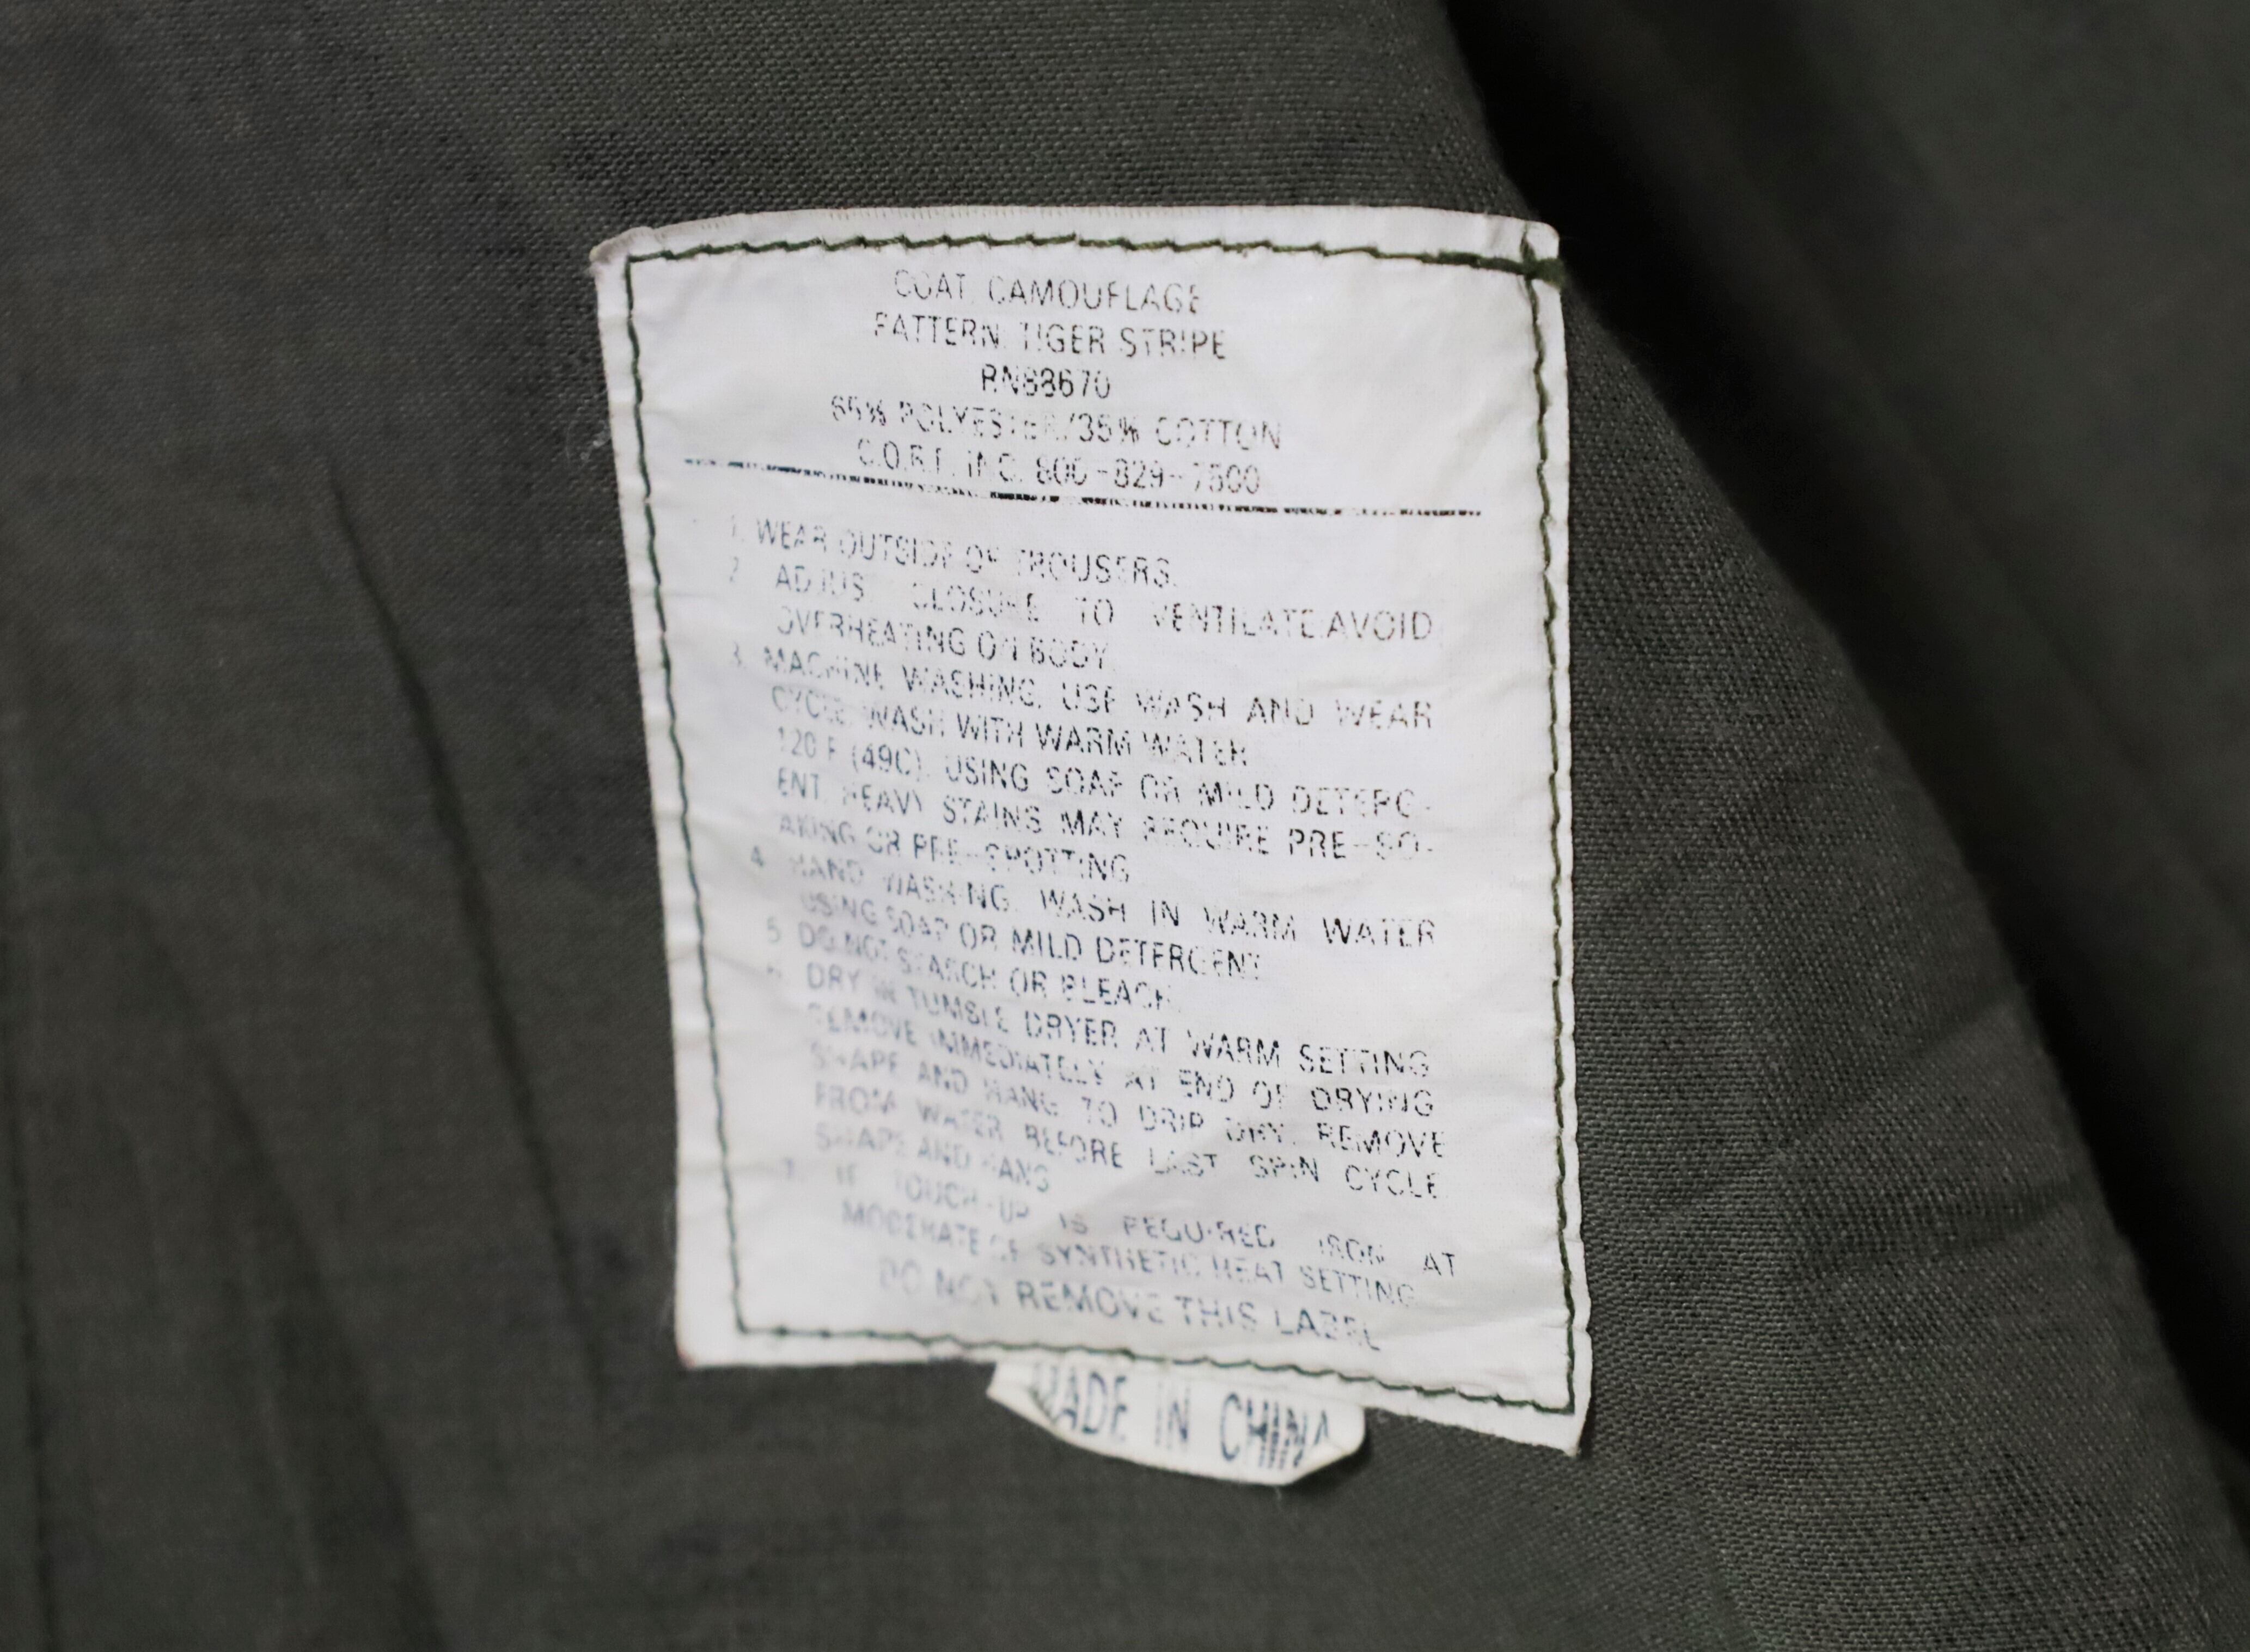 COAT, CAMOUFLAGE
PATTERN: TIGER STRIPE
RN88670
65% POLYESTER/35% COTTON
INC. 800-829-7500
1. WEAR OUTSIDE OF TROUSERS.
2. ADJUST CLOSURE TO VENTILATE.AVOID
OVERHEATING ON BODY.
3. MACHINE WASHING. USE WASH AND WEAR
CYCLE. WASH WITH WARM WATER
120 F (49C). USING SOAP OR MILD DETERG-
ENT. HEAVY STAINS MAY REQUIRE PRE-SO-
AKING OR PRE-SPOTTING
4. HAND WASHING. WASH IN WARM WATER
USING SOAP OR MILD DETERGENT
5. DO NOT STARCH OR BLEACH.
6. DRY IN TUMBLE DRYER AT WARM SETTING
REMOVE IMMEDIATELY AT END OF DRYING
SHAPE AND HANG TO DRIP DRY. REMOVE
FROM WATER BEFORE LAST SPIN CYCLE
SHAPE AND HANG
7. IF TOUCH-UP IS REQUIRED IRON AT
MODERATE OF SYNTHETIC HEAT SETTING
DO NOT REMOVE THIS LABEL
MADE IN CHINA